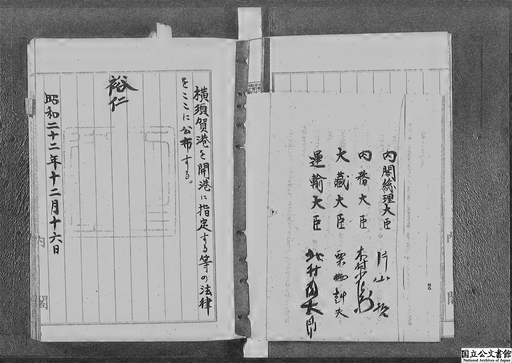 内閣総理大臣 片山哲
内務大臣 木村小左衛門
大藏大臣 栗栖赳夫
運輸大臣 北村徳太郎
横須賀港を開港に指定する等の法律
をここに公布する。
裕仁
昭和二十二年十二月十六日
内閣
国立公文書館
National Archives of Japan